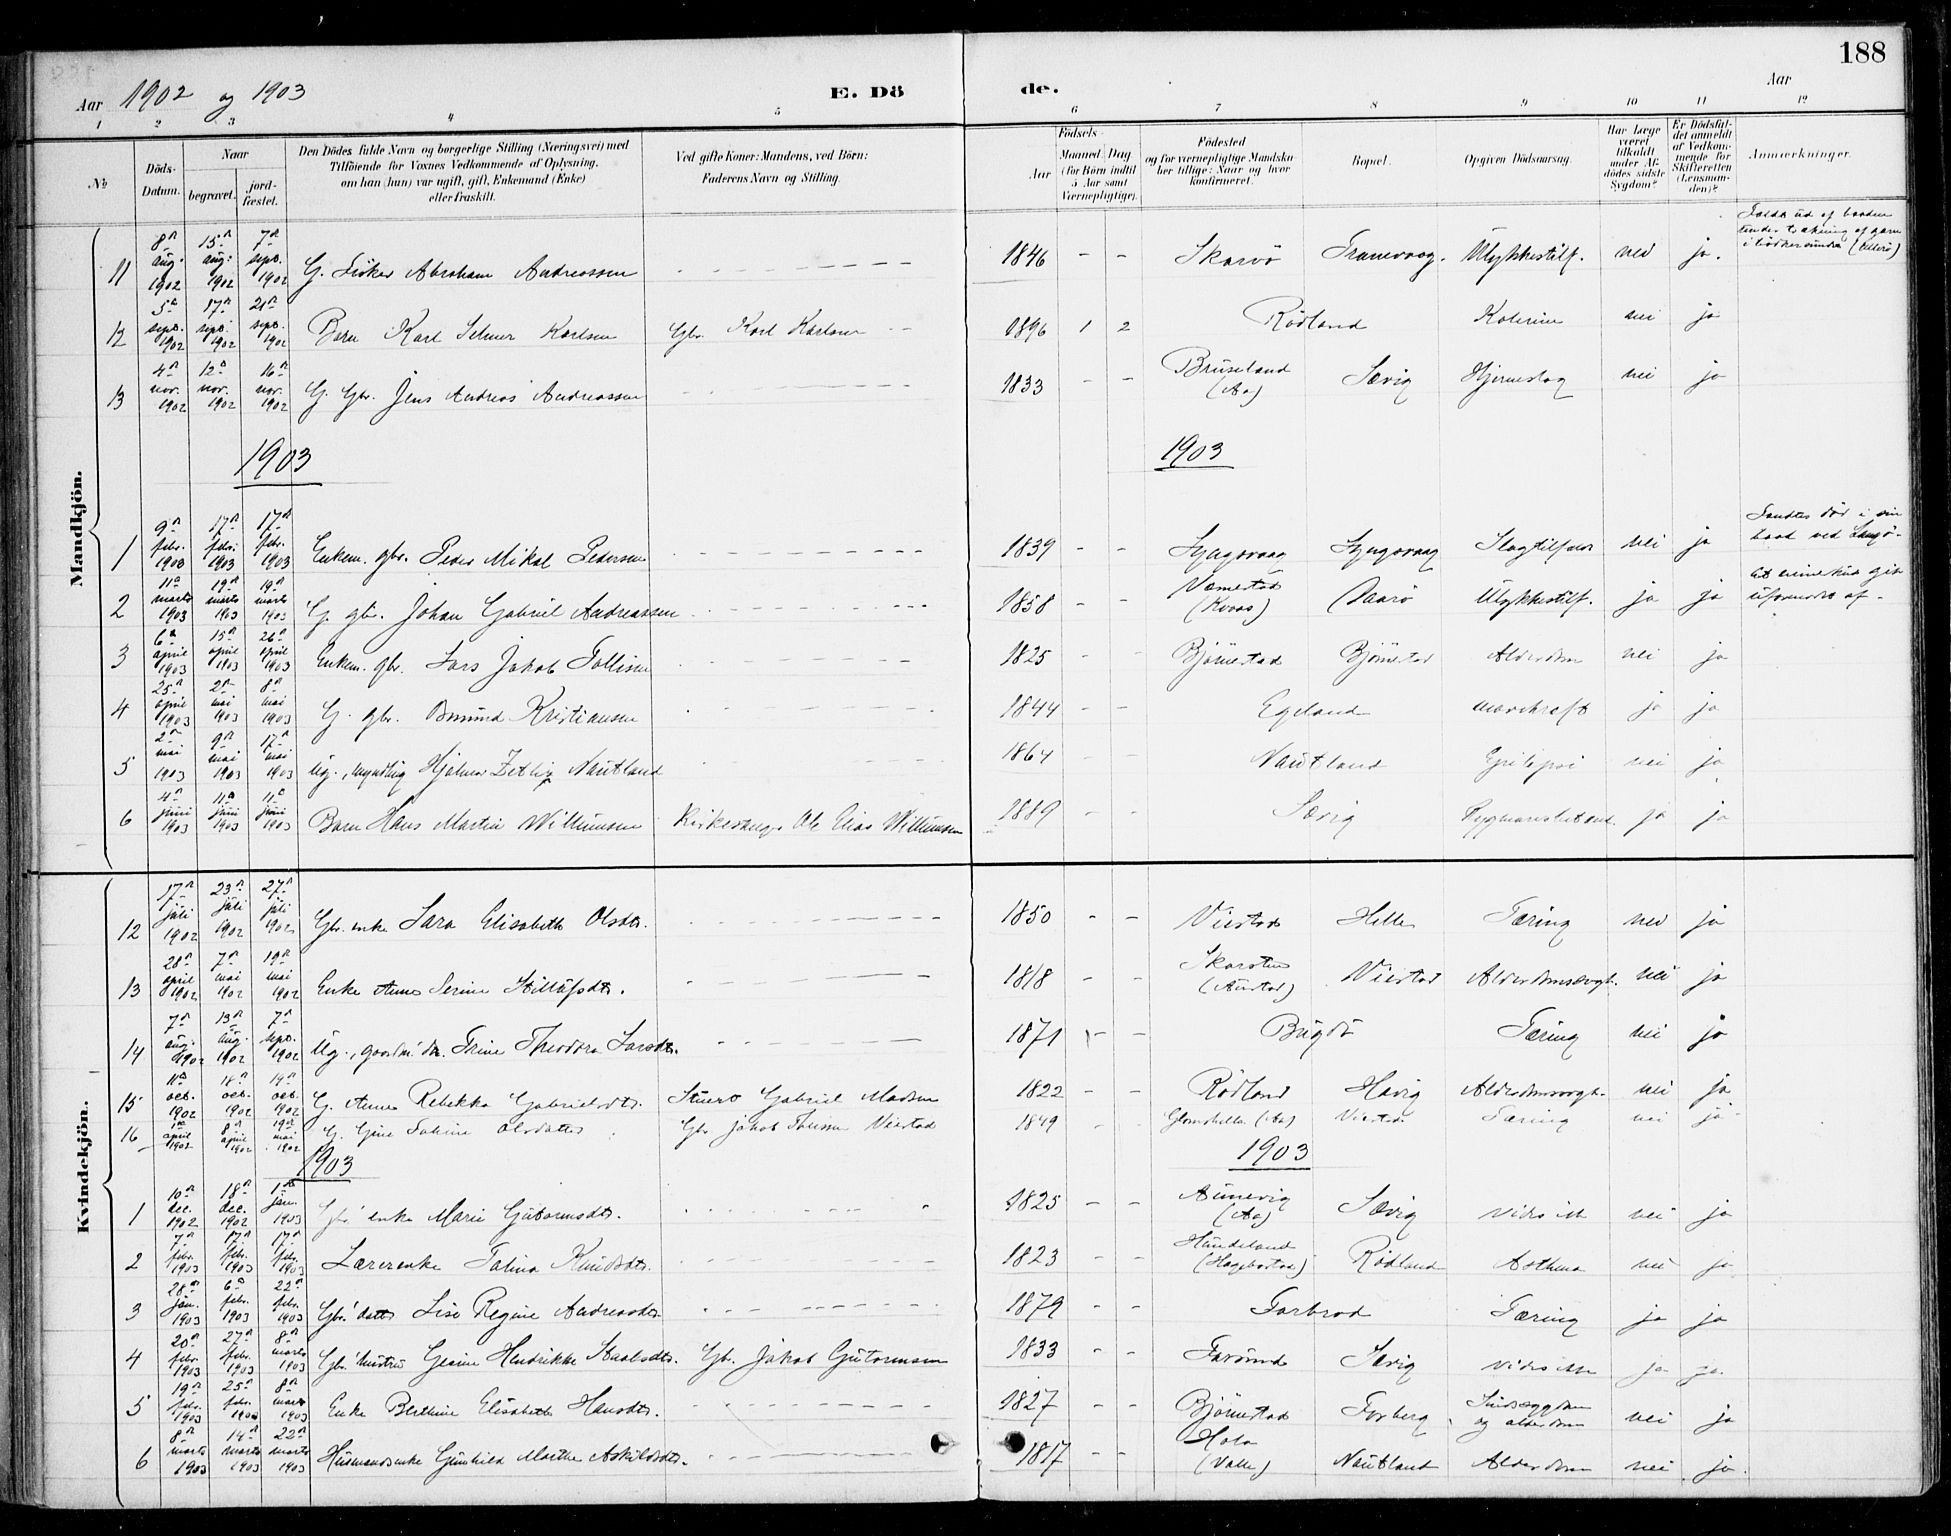 188
Aar 1902 og 1903 E. Dö de. Aar
1 2 3 4 5 6 7 8 9 10 11 12
№ Döds-Datum. Naar begravet. jord-fæstet. Den Dödes fulde Navn og borgerlige Stilling (Næringsvei) med Tilföiende for Voxnes Vedkommende af Oplysning, om han (hun) var ugift, gift, Enkemand (Enke) eller fraskilt. Ved gifte Koner: Mandens, ved Börn: Faderens Navn og Stilling. Födsels- Aar Maaned Dag (for Börn indtil 5 Aar samt Værnepligtige). Födested og for værnepligtige Mandskaber tillige: Naar og hvor konfirmeret. Bopæl. Opgiven Dödsaarsag. Har Læge været tilkaldt under Afdödes sidste Sygdom? Er Dödsfaldet anmeldt af Vedkommende for Skifteretten (Lensmanden)? Anmærkninger.
Mandkjön.
11 8de aug. 1902 15de aug. 1902 7de sept. 1902 G. Fisker Abraham Andreassen 1846 - - Skarvö Tranevaag. Ulykkestilf. nei ja. ud af baaden under trækning af garn
12 5te sept. 1902 17de sept. 1902 21de sept. 1902 Barn Karl Selmer Karlsen Gbr. Karl Karlsen 1896 1 2 Rödland nei ja
13 4de nov. 1902 12te nov. 1902 16de nov. 1902 G. Gbr. Jens Andreas Andreassen 1833 - - Bruseland (Aa) Sævig Hjerneslag nei ja
1903 1903
1 9de febr. 1903 17de febr. 1903 17de febr. 1903 Enkem. gbr. Peder Mikal Pedersen 1839 - - Lyngsvaag Lyngsvaag Slagtilfær nei ja Fandtes död i sin baad ved Langö.
2 11te marts 1903 19de marts 1903 19de marts 1903 G. gbr. Johan Gabriel Andreassen 1858 - - Væmestad (Kvaas) Ulykkestilf. ja ja Et mineskud gik uformodet af.
3 6te april 1903 15de april 1903 26de april 1903 Enkem. gbr. Lars Jakob Tollisen 1825 - - Björnestad Björnestad Alderdom nei ja
4 25de april 1903 2de mai 1903 8de mai 1903 G. gbr. Omund Kristiansen 1844 - - Egeland mavekræft ja ja
5 2de mai 1903 9de mai 1903 17de mai 1903 Ug., myndig Hjalmar Zetlig Nautland 1864 - - Nautland Epilepsi nei ja
6 4de juni 1903 11te juni 1903 11te juni 1903 Barn Hans Martin Willumsen Kirkesanger Ole Elias Willumsen 1889 - - Sævig ja ja
Kvindekjön.
12 17de juli 1902 23de juli 1902 27de juli 1902 Gbr. enke Sara Elisabeth Olsdtr. 1850 - - Vierstad Helle Tæring nei ja
13 28de april 1902 7de mai 1902 19de mai 1902 Enke Anne Serine 1818 - - (Austad) Vierstad Alderdomssvagh. nei ja
14 7de aug. 1902 13de aug. 1902 7de sept. 1902 Ug., gaardm. dtr. Trine Theodora Larsdtr. 1871 - - Bugdö Tæring nei ja
15 11te oct. 1902 18de oct. 1902 19de oct. 1902 G. Anne Rebekka Gabrielsdtr. Gabriel Madsen 1822 - - Rödland Havig Alderdomssvagh. nei ja
16 1ste april 1902 8de april 1902 19de mai 1902 G. Gine Tobine Olsdatter Gbr. Jakob Vierstad 1849 (Aa) Vierstad Tæring nei ja
1903 1903
1 10de dec. 1902 18de dec. 1902 1ste jan. 1903 Gbr. enke Marie Gutormsdtr. 1825 - - Aunevig (Aa) Sævig nei ja
2 7de febr. 1903 17de febr. 1903 17de febr. 1903 Lærerenke Talina Knudsdtr. 1823 - - (Hægebostad) Rödland Asthma nei ja
3 28de jan. 1903 6te febr. 1903 22de febr. 1903 Gbr. datter Lise Regine Andreasdtr. 1879 - - Farbrod Tæring ja ja
4 20de febr. 1903 27de febr. 1903 8de marts 1903 Gbr. hustru Gesine Hendrikke Gbr. Jakob Gutormsen 1833 - - Farömd Sævig ja ja
5 19de febr. 1903 25de febr. 1903 8de marts 1903 Enke Berthine Elisabeth Hansdtr. 1827 - - Björnestad Farberg og alderdom nei ja
6 8de marts 1903 14de marts 1903 22de marts 1903 Husmandsenke Gunhild Marthe Askildsdtr. 1817 - - (Valle) Nautland Alderdom nei ja.